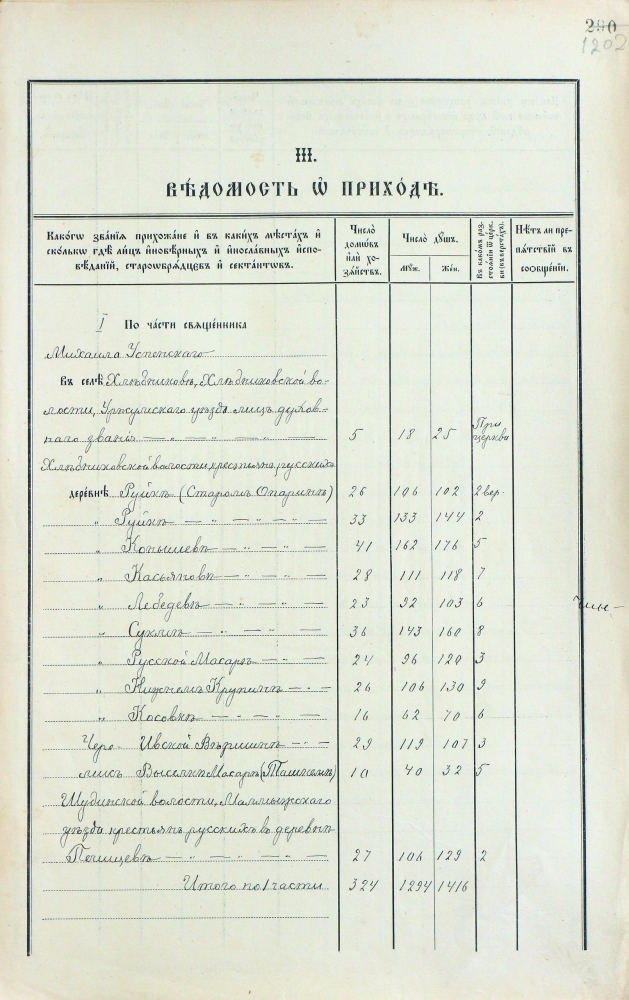 290
1202
III.
ВѢ́ДОМОСТЬ Ѡ҆ ПРИХО́ДѢ.
Како́гѡ зва́нїѧ прихожа́не и҆ въ каки́хъ мѣ́стахъ и҆ ско́лькѡ гдѣ̀ ли́цъ и҆новѣ́рныхъ и҆ и҆носла́вныхъ и҆сповѣ́данїй, староѡбрѧ́дцевъ и҆ секта́нтѡвъ.
Число̀ домѡ́въ и҆лѝ хозѧ́йствъ.
Число̀ дꙋ́шъ.
Мꙋж.
Жен.
Въ како́мъ разстоѧ́нїи ѿ це́ркви (въ верста́хъ).
Нѣ́тъ ли препѧ́тствїй въ соѻбще́нїи.
I По ча́сти свѧще́нника
Михаила Успенскаго
Въ селѣ̀ Хлѣбниковѣ, Хлѣбниковской во-
лости, Уржумскаго уѣзда лицъ духов-
наго званія — „ — „ — „ — 5 18 25 При церкви
Хлѣбниковской волости крестьянъ русскихъ
дере́внѣ Руйкѣ (Старомъ Опаринѣ) 26 106 102 2 вер.
„ Руйкѣ — „ — „ — „ — 33 133 144 2
„ Конышевѣ — „ — „ — 41 162 176 5
„ Касьяновѣ — „ — „ — 28 111 118 7
„ Лебедевѣ — „ — „ — 23 92 103 6
„ Суклиѣ — „ — „ — 36 143 160 8
„ Русской Масарѣ — „ — 24 96 120 3
„ Нижнемъ Крупинѣ — „ — 26 106 130 9
„ Косовкѣ — „ — „ — 16 62 70 6
Чере- Ивской Вершинѣ — „ — 29 119 107 3
мисъ Выселкѣ Масарѣ 10 40 32 5
Шудинской волости, Малмыжскаго
уѣзда крестьянъ русскихъ въ деревнѣ
Пенищевѣ — „ — „ — „ — 27 106 129 2
Итого по 1 части 324 1294 1416